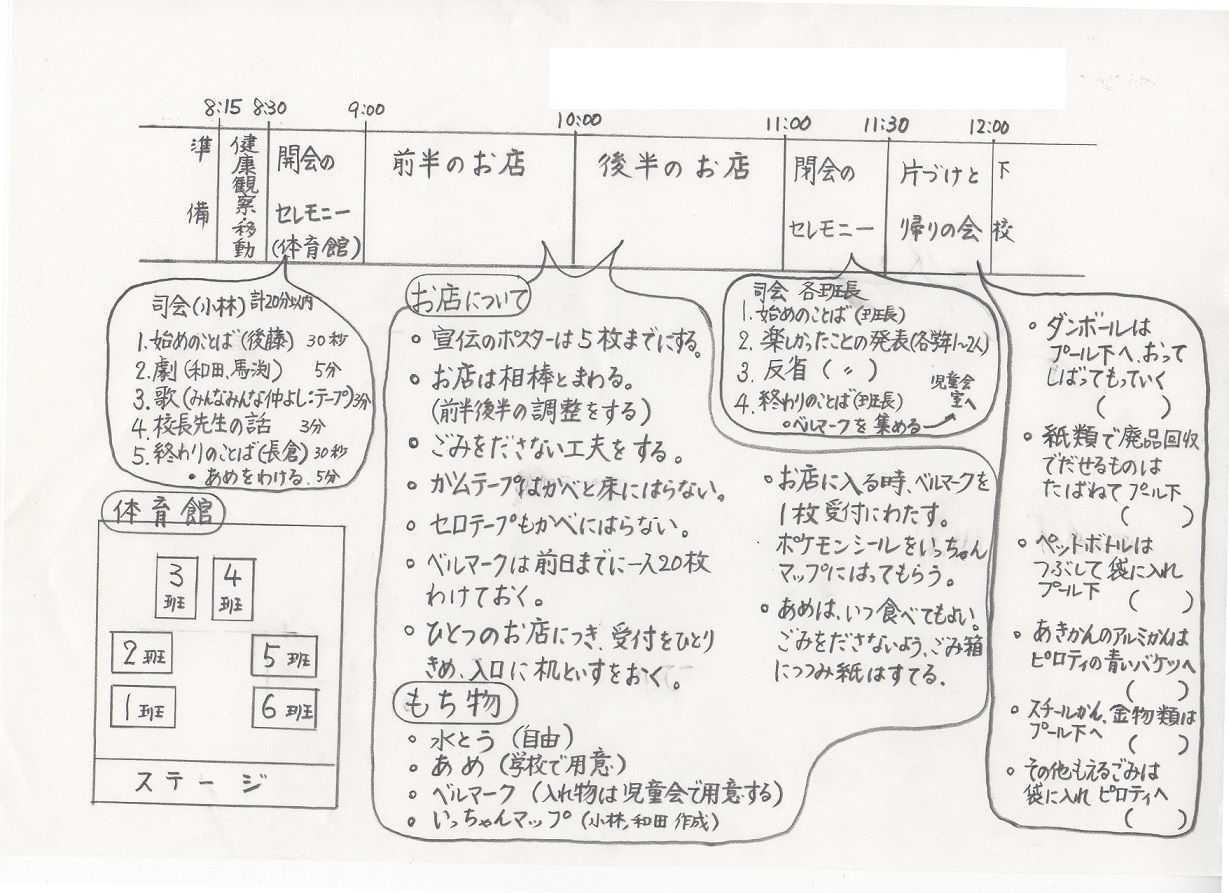 8:15 8:30 9:00 10:00 11:00 11:30 12:00
準備
健康観察・移動
開会の
セレモニー
(体育館)
前半のお店
後半のお店
閉会の
セレモニー
片づけと
帰りの会
下校
司会(小林) 計20分以内
1.始めのことば(後藤) 30秒
2.劇(和田、馬渕) 5分
3.歌(みんなみんな仲よし:テープ)3分
4.校長先生の話 3分
5.終わりのことば(長倉)30秒
・あめをわける 5分
体育館
3班
4班
2班
5班
1班
6班
ステージ
お店について
○宣伝のポスターは5枚までにする。
○お店は相棒とまわる。
(前半後半の調整をする)
○ごみをださない工夫をする。
○ガムテープはかべと床にはらない。
○セロテープもかべにはらない。
○ベルマークは前日までに一人20枚
わけておく。
○ひとつのお店につき、受付をひとり
きめ、入口に机といすをおく。
もち物
○水とう (自由)
○あめ (学校で用意)
○ベルマーク (入れ物は児童会で用意する)
○いっちゃんマップ (小林、和田 作成)
○お店に入る時、ベルマークを
1枚受付にわたす。
ポケモンシールをいっちゃん
マップにはってもらう。
○あめは、いつ食べてもよい。
ごみをださないよう、ごみ箱
につつみ紙はすてる。
司会 各班長
1.始めのことば(班長)
2.楽しかったことの発表(各学年1~2人)
3.反省(〃)
4.終わりのことば(班長)
○ベルマークを集める→
児童会
室へ
○ダンボールは
プール下へ、おって
しばってもっていく
( )
○紙類で廃品回収
でだせるものは
たばねてプール下
( )
○ペットボトルは
つぶして袋に入れ
プール下 ( )
○あきかんのアルミかんは
ピロティの青いバケツへ
( )
○スチールかん、金物類は
プール下へ ( )
○その他もえるごみは
袋に入れピロティへ
( )